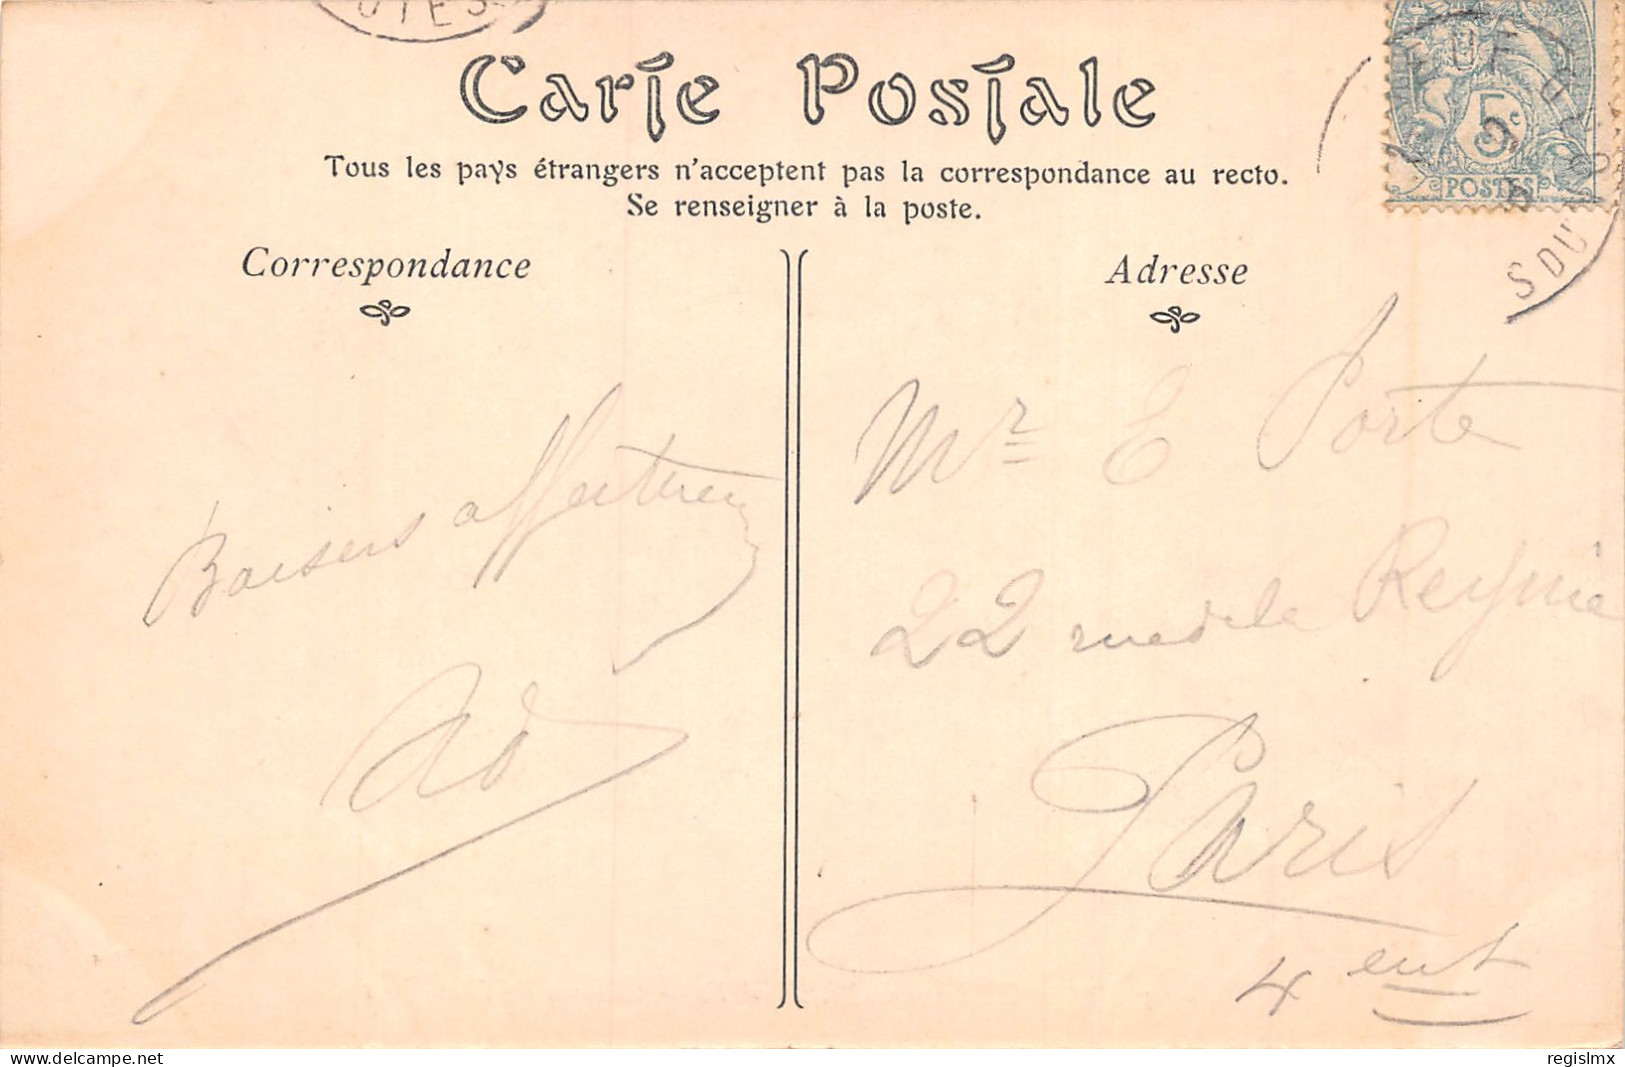 Carte Postale
Tous les pays étrangers n'acceptent pas la correspondance au recto.
Se renseigner à la poste.
Correspondance
Adresse
5c
POSTES
S DU
Baisers affectueux
Ad
Mr E Porte
22 rue de la Reynie
Paris
4 ent
delcampe.net
regislmx